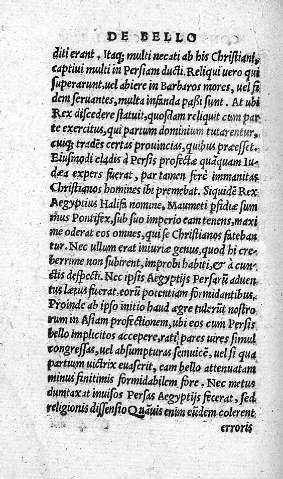 DE BELLO
diti erant. Itaq; multi necati ab his Christiani,
captiui multi in Persiam ducti. Reliqui uero qui
superarunt, uel abiere in Barbaros mores, uel fi
dem seruantes, multa infanda paßi sunt. At ubi
Rex discedere statuit, quosdam reliquit cum par
te exercitus, qui partum dominium tutarentur,
cuiq; tradēs certas prouincias, quibus præesset.
Eiusmodi cladis à Persis profectæ quāquam Iu-
dæa expers fuerat, par tamen ferè immanitas
Christianos homines ibi premebat. Siquidē Rex
Aegyptius Halifa nomine, Maumeti psidiæ sum
mus Pontifex, sub suo imperio eam tenens, maxi
me oderat eos omnes, qui se Christianos fateban
tur. Nec ullum erat iniuriæ genus, quod hi cre-
berrime non subirent, improbi habiti, & à cun-
ctis despecti. Nec ipsis Aegyptijs Persarū aduen
tus lætus fuerat, eorū potentiam formidantibus.
Proinde ab ipso initio haud ægre tulerūt nostro
rum in Asiam profectionem, ubi eos cum Persis
bello implicitos accepere, rati pares uires simul
congressas, uel absumpturas se inuicē, uel si qua
partium uictrix euaserit, eam bello attenuatam
minus finitimis formidabilem fore. Nec metus
duntaxat inuisos Persas Aegyptijs fecerat, sed
religionis dissensio Quāuis enim eūdem colerent
erroris